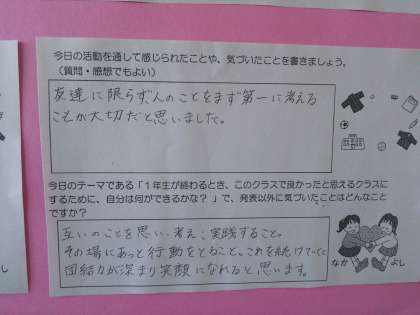 今日の活動を通して感じられたことや、気づいたことを書きましょう。
（質問・感想でもよい）
友達に限らず、人のことをまず第一に考える
ことが大切だと思いました。
今日のテーマである「１年生が終わるとき、このクラスで良かったと思えるクラスに
するために、自分は何ができるかな？」で、発表以外に気づいたことはどんなこと
ですか？
互いのことを思い、考え、実践すること。
その場にあった行動をとること、これを続けていくと
団結力が深まり笑顔になれると思います。
なか よし